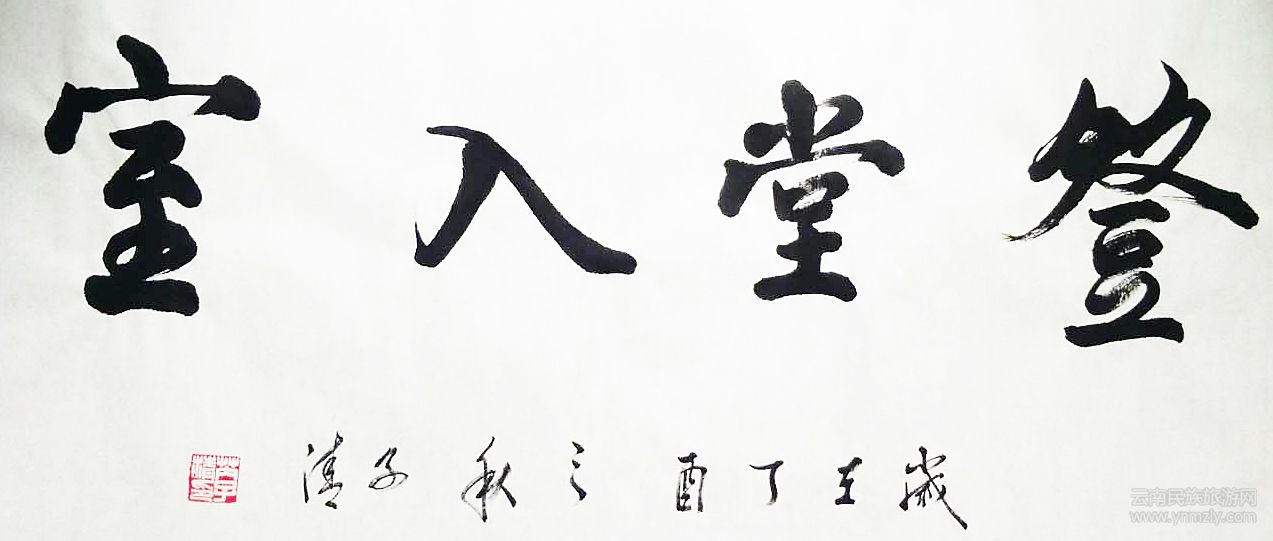 登堂入室
歲在丁酉之秋 子清
云南民族旅游网
www.ynmzly.com